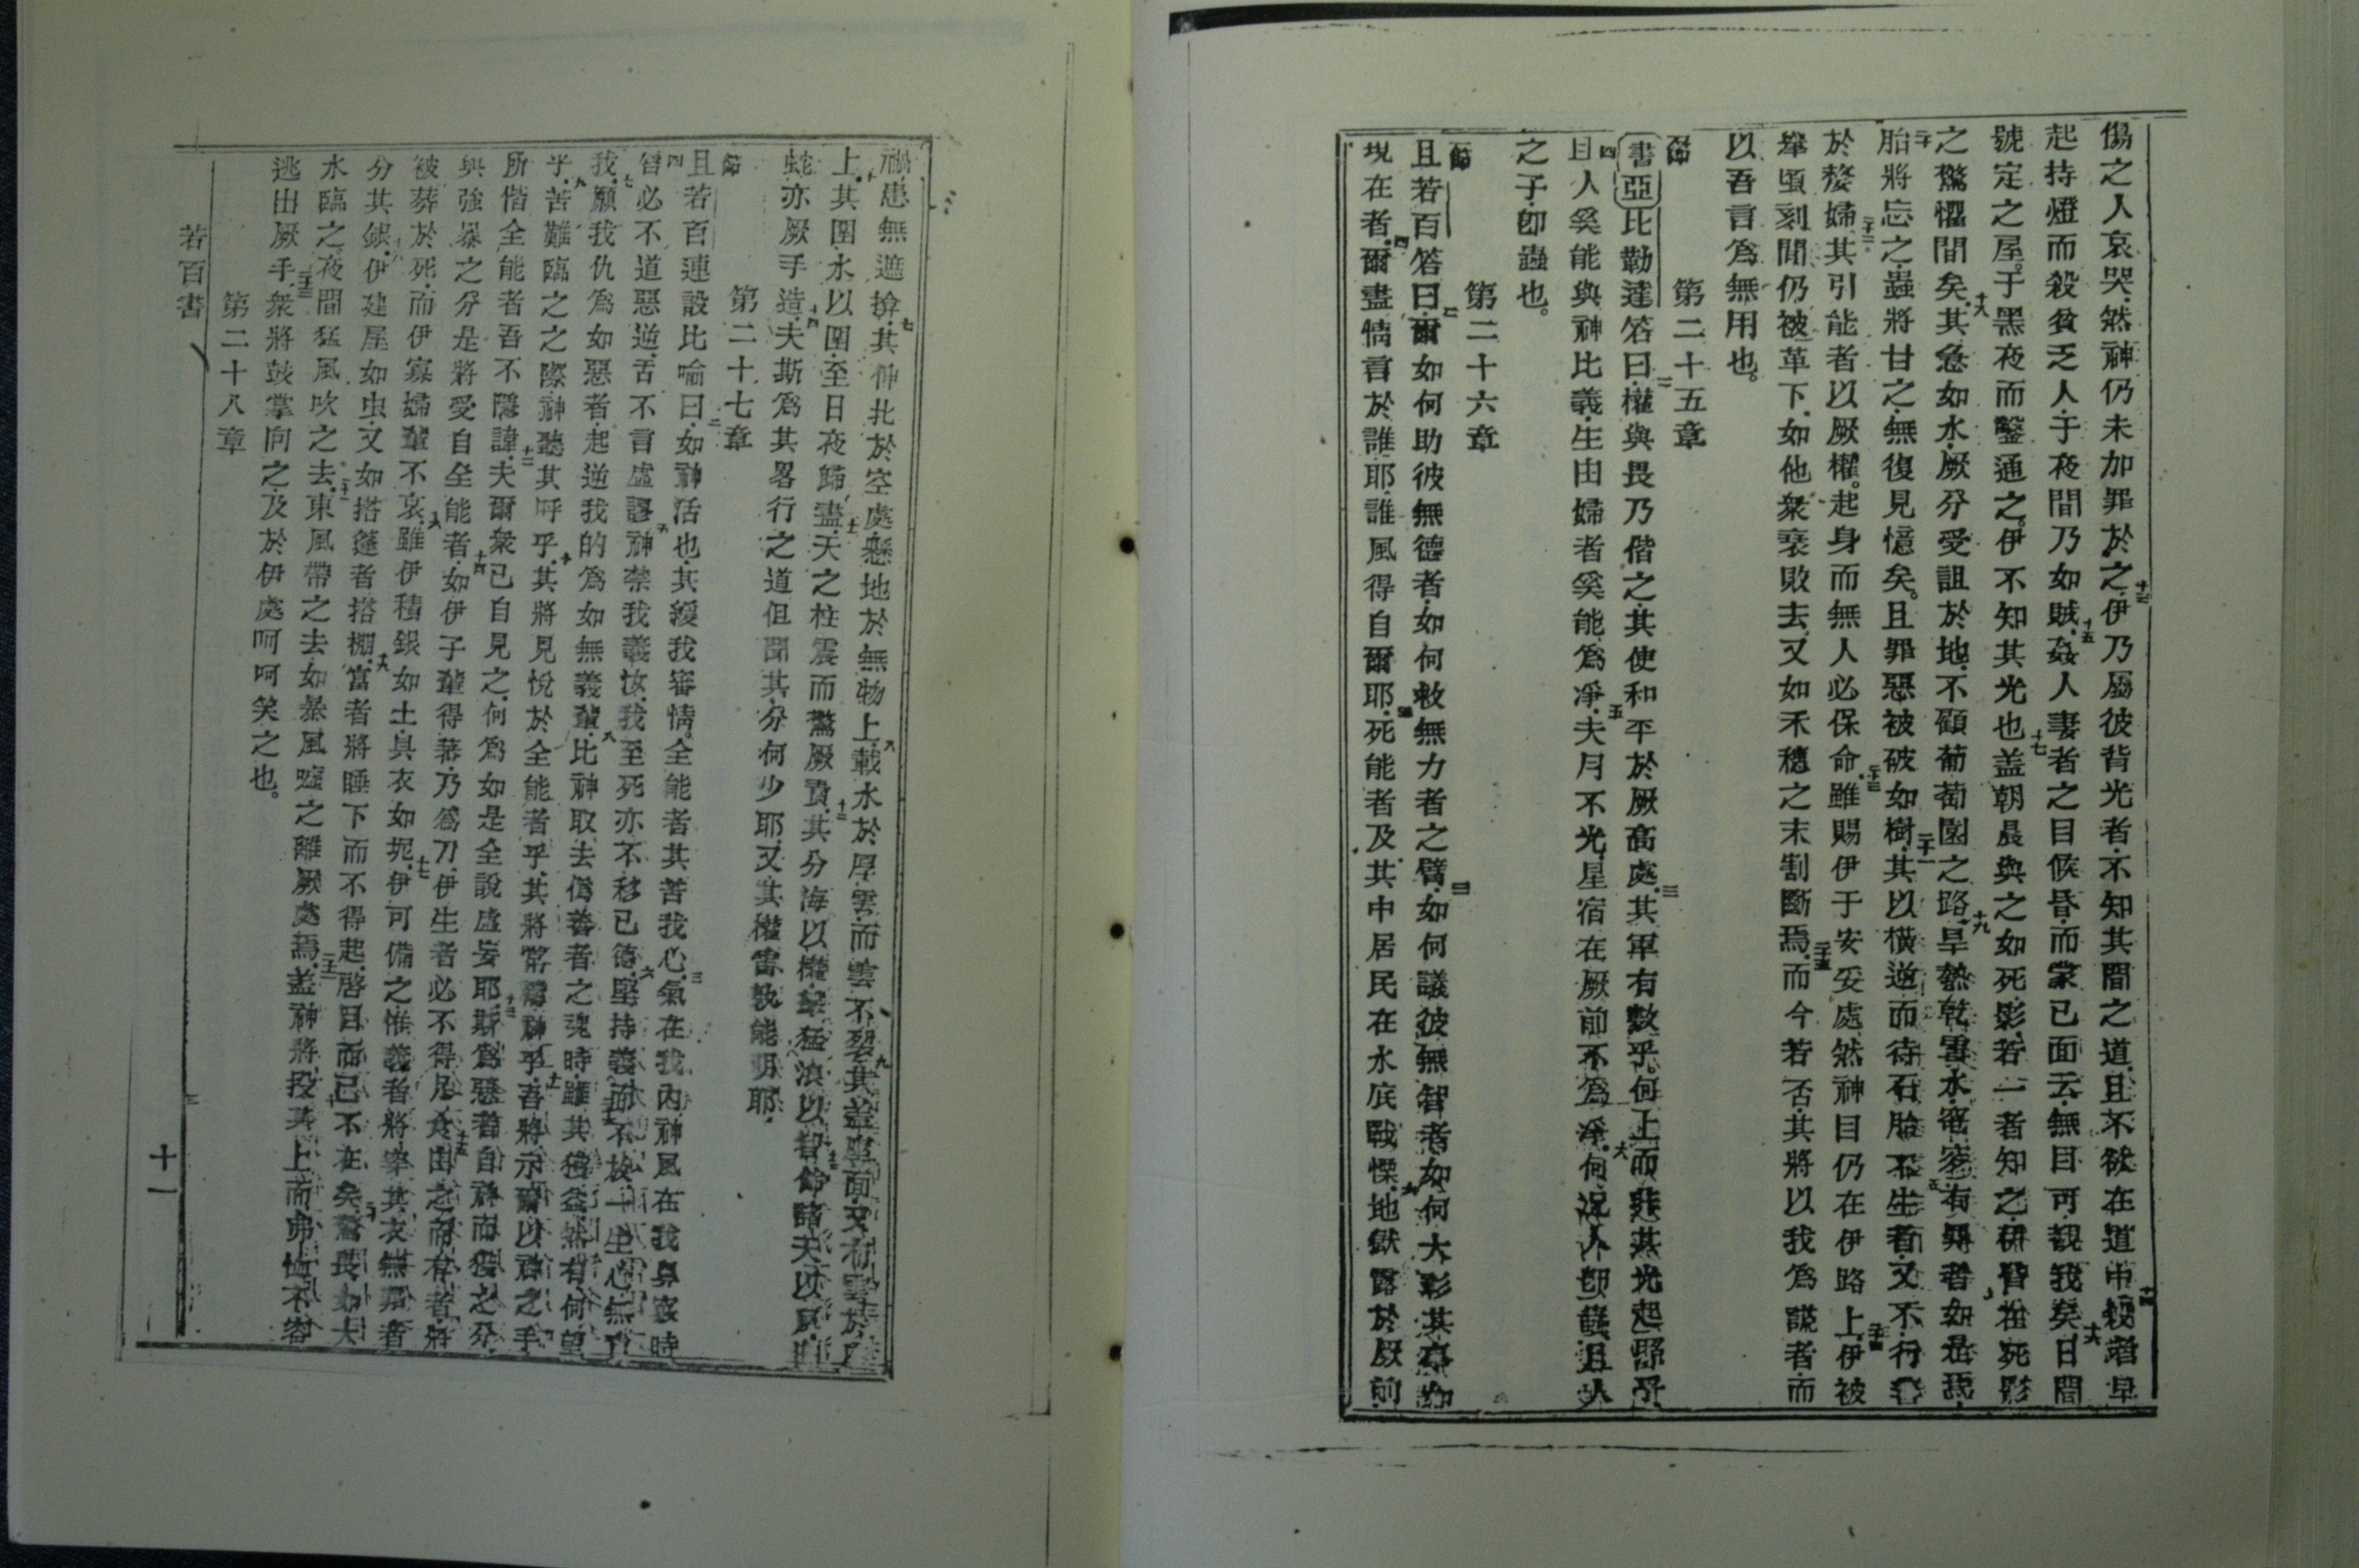 傷之人哀哭然神仍未加罪於之伊乃屬彼背光者不知其間之道且不欲在道中殺者早
起持燈而殺貧乏人于夜間乃如賊姦人妻者之目候昏而蒙已面云無目可覩我矣日間
號定之屋于黑夜而鑿通之伊不知其光也盖朝晨與之如死影若一者知之
之驚懼間矣其急如水厥分受詛於地不顧葡萄園之路旱熱乾雪水
胎將忘之蟲將甘之無復見憶矣且罪惡被破如樹其以橫逆而待石胎不生者又不行
於嫠婦其引能者以厥權起身而無人必保命雖賜伊于安妥處然神目仍在伊路上伊被
舉頃刻間仍被革下如他衆衰敗去又如禾穗之末割斷焉而今若否其將以我為謊者而
以吾言為無用也
第二十五章
節
書亞比勒達答曰權與畏乃偕之其使和平於厥高處其軍有數乎何上而
且人奚能與神比義生由婦者奚能為凈夫月不光星宿在厥前不為凈何况人
之子卽蟲也
第二十六章
節
且若百答曰爾如何助彼無德者如何救無力者之臂如何議彼無智者如何大彰其
現在者爾盡情言於誰耶誰風得自爾耶死能者及其中居民在水底戰慄地獄露於厥前
禍患無遮揜其伸北於空處懸地於無物上載水於厚雲而雲不裂其
上其圍水以圍至日夜歸盡天之柱震而驚厥責其分海以權
蛇亦厥手造夫斯為其畧行之道但聞其分何少耶又其權雷孰能明耶
第二十七章
節
且若百連設比喻曰如神活也其緩我審情全能者其苦我心氣在我內神風在我鼻竅時
唇必不道惡逆舌不言虛謬神禁我義汝我至死亦不移已德堅持義而不放一生心無責
我願我仇為如惡者起逆我的為如無義輩比神取去僞善者之魂時雖其獲益然有何望
乎苦難臨之之際神聽其呼乎其將見悅於全能者乎其將常禱神乎吾將示爾以神之手
所偕全能者吾不隱諱夫爾衆已自見之何為如是全說虛妄耶斯為惡者自神而獲之分
與強暴之分是將受自全能者如伊子輩得蕃乃為刀伊生者必不得足
被葬於死而伊寡婦輩不哀雖伊積銀如土具衣如坭伊可備之惟義者將穿其衣無罪者
分其銀伊建屋如虫又如搭篷者搭棚富者將睡下而不得起啓目而已不在矣驚畏如大
水臨之夜間猛風吹之去東風帶之去如暴風噓之離厥處焉盖神將投其上而弗
逃出厥手衆將鼓掌向之及於伊處呵呵笑之也
第二十八章
若百書
十一